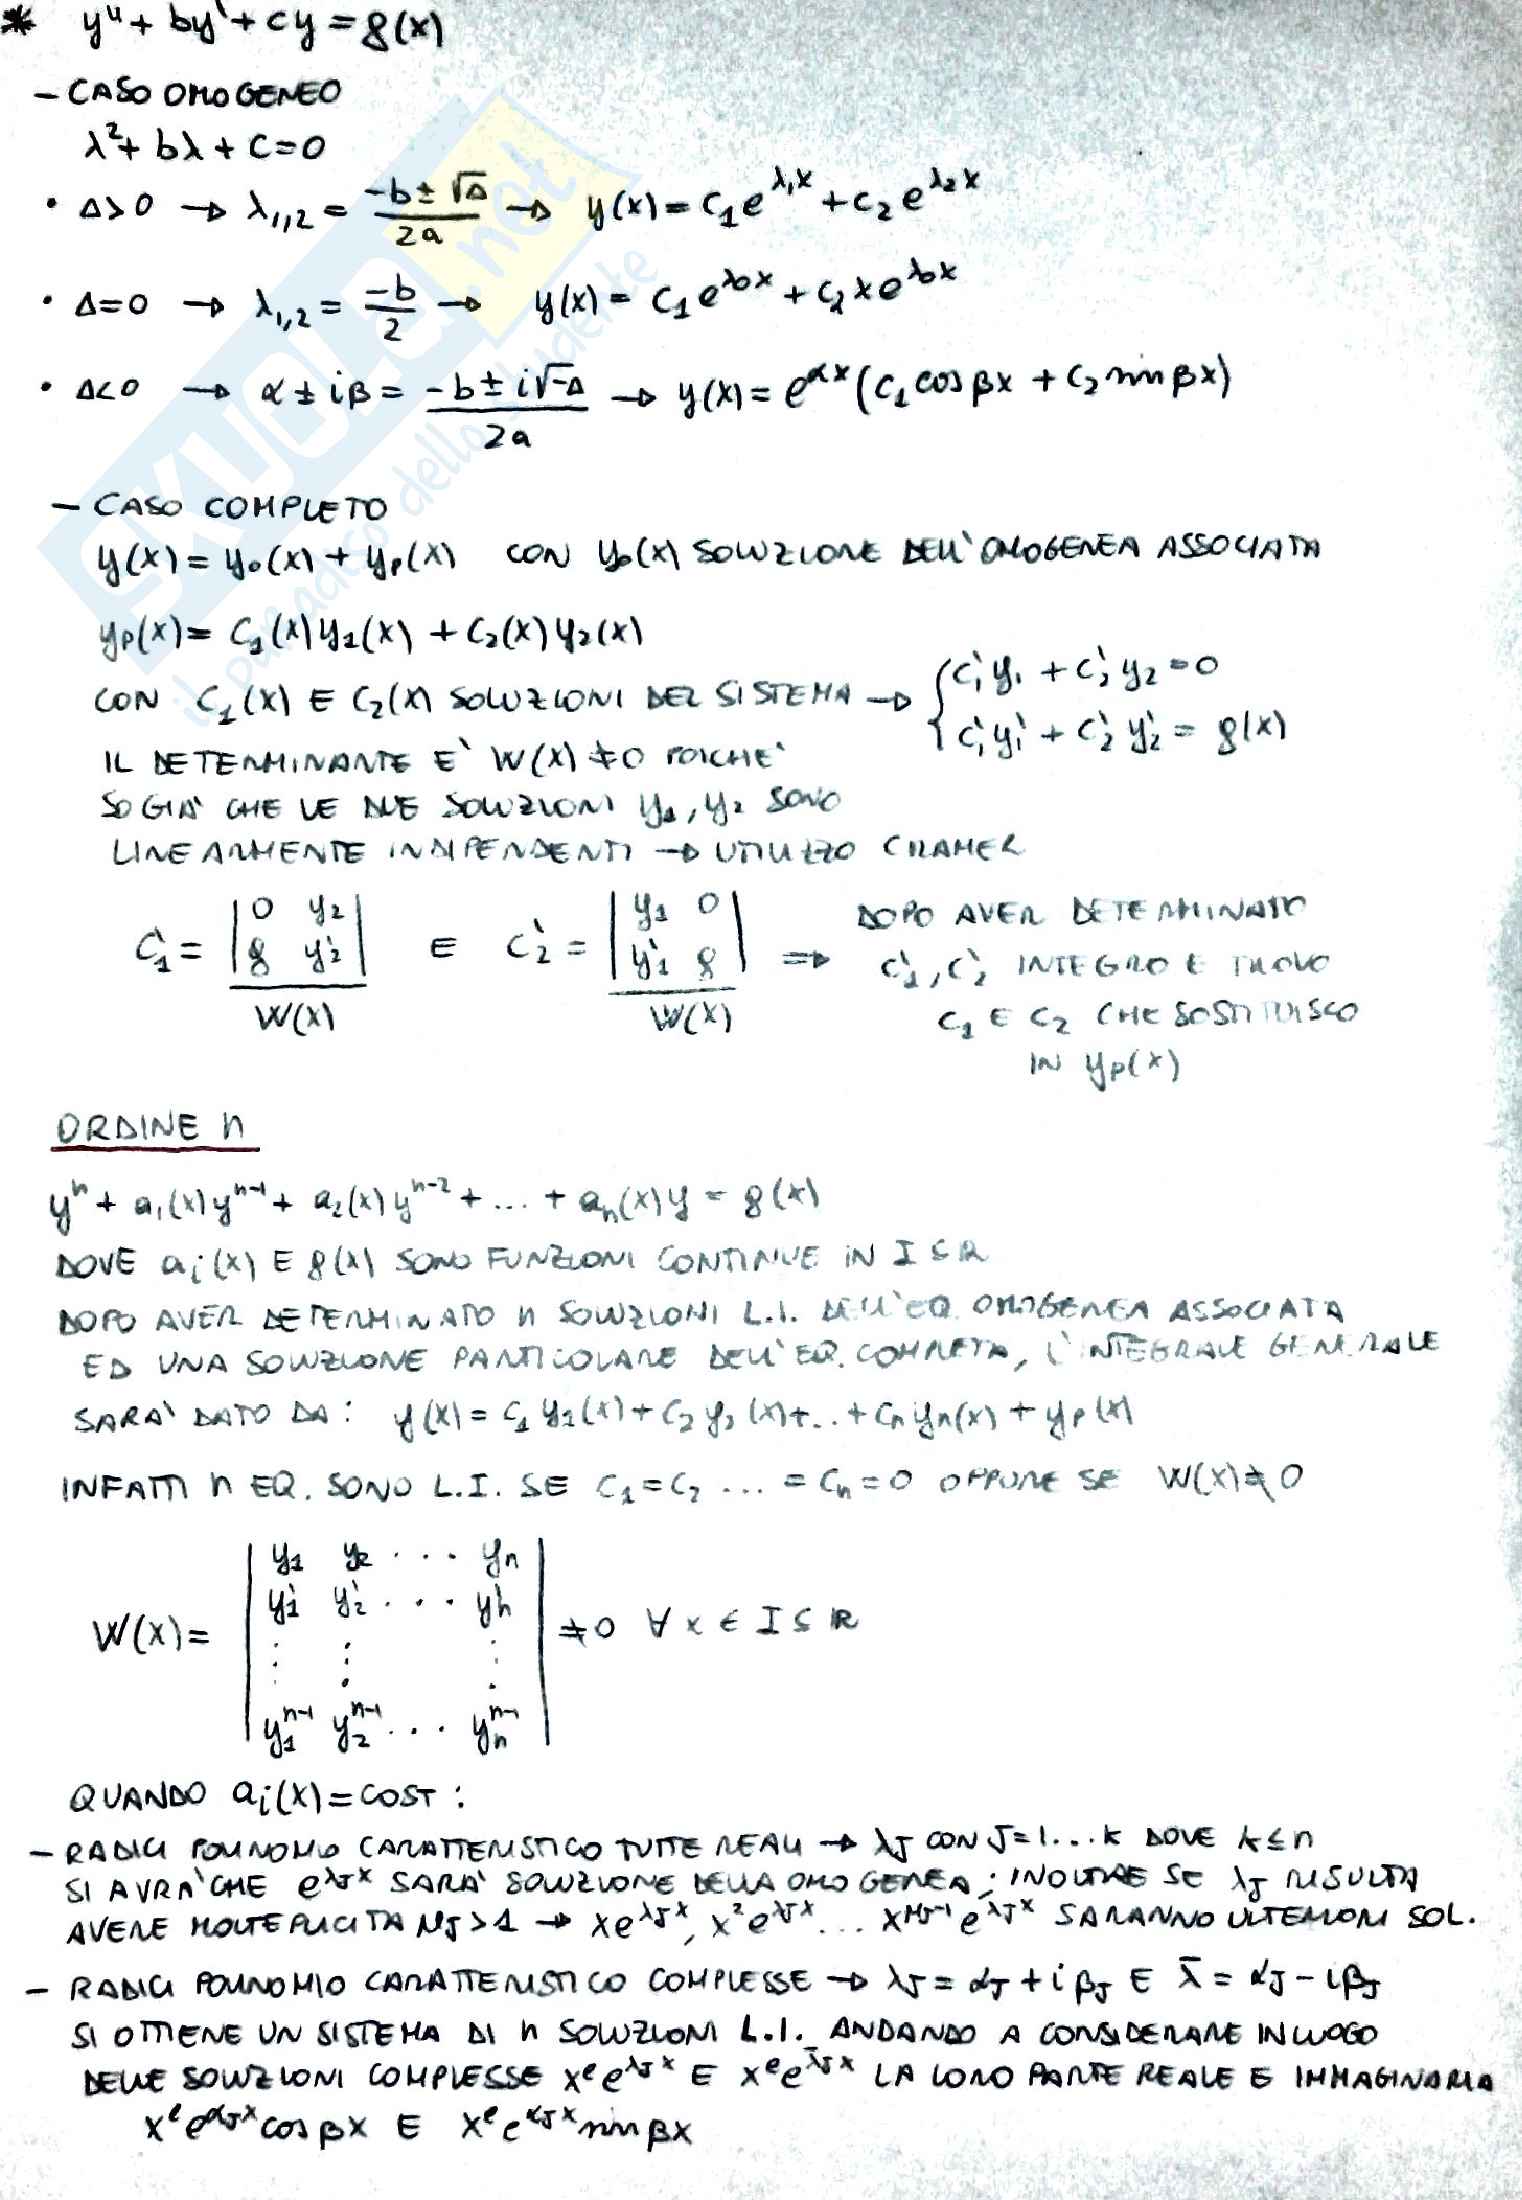 * y'' + by' + cy = g(x)
- CASO OMOGENEO
λ² + bλ + c = 0
• Δ>0 → λ1,2 = (-b ± √Δ)/2a → y(x) = c1 e^λ1x + c2 e^λ2x
• Δ=0 → λ1,2 = -b/2 → y(x) = c1 e^λ0x + c2 x e^λ0x
• Δ<0 → α ± iβ = (-b ± i√-Δ)/2a → y(x) = e^αx (c1 cos βx + c2 sin βx)
- CASO COMPLETO
y(x) = y0(x) + yp(x) CON y0(x) SOLUZIONE DELL'OMOGENEA ASSOCIATA
yp(x) = C1(x) y1(x) + C2(x) y2(x)
CON C1(x) E C2(x) SOLUZIONI DEL SISTEMA → { c1' y1 + c2' y2 = 0
c1' y1' + c2' y2' = g(x)
IL DETERMINANTE E' W(x) ≠ 0 POICHE'
SO GIA' CHE LE DUE SOLUZIONI y1, y2 SONO
LINEARMENTE INDIPENDENTI → UTILIZZO CRAMER
C1' = |0 y2; g y2'| / W(x) E C2' = |y1 0; y1' g| / W(x) ⇒ DOPO AVER DETERMINATO
C1', C2' INTEGRO E TROVO
C1 E C2 CHE SOSTITUISCO
IN yp(x)
ORDINE n
y^n + a1(x) y^n-1 + a2(x) y^n-2 + ... + an(x) y = g(x)
DOVE ai(x) E g(x) SONO FUNZIONI CONTINUE IN I ⊆ R
DOPO AVER DETERMINATO n SOLUZIONI L.I. DELL'EQ. OMOGENEA ASSOCIATA
ED UNA SOLUZIONE PARTICOLARE DELL'EQ. COMPLETA, L'INTEGRALE GENERALE
SARA' DATO DA: y(x) = c1 y1(x) + c2 y2(x) + ... + cn yn(x) + yp(x)
INFATTI n EQ. SONO L.I. SE C1 = C2 ... = Cn = 0 OPPURE SE W(x) ≠ 0
W(x) = | y1 y2 ... yn
y1' y2' ... yn'
⋮ ⋮ ⋮
y1^n-1 y2^n-1 ... yn^n-1 | ≠ 0 ∀ x ∈ I ⊆ R
QUANDO ai(x) = COST :
- RADICI POLINOMIO CARATTERISTICO TUTTE REALI → λJ CON J=1...K DOVE K ≤ n
SI AVRA' CHE e^λJx SARA' SOLUZIONE DELLA OMOGENEA; INOLTRE SE λJ RISULTA
AVERE MOLTEPLICITA' MJ > 1 → xe^λJx, x²e^λJx ... x^MJ-1 e^λJx SARANNO ULTERIORI SOL.
- RADICI POLINOMIO CARATTERISTICO COMPLESSE → λJ = αJ + iβJ E λ̄ = αJ - iβJ
SI OTTIENE UN SISTEMA DI n SOLUZIONI L.I. ANDANDO A CONSIDERARE IN LUOGO
DELLE SOLUZIONI COMPLESSE x^e e^λJx E x^e e^λ̄Jx LA LORO PARTE REALE E IMMAGINARIA
x^e e^αJx cos βx E x^e e^αJx sin βx
SKUOLA.net
il paradiso dello studente